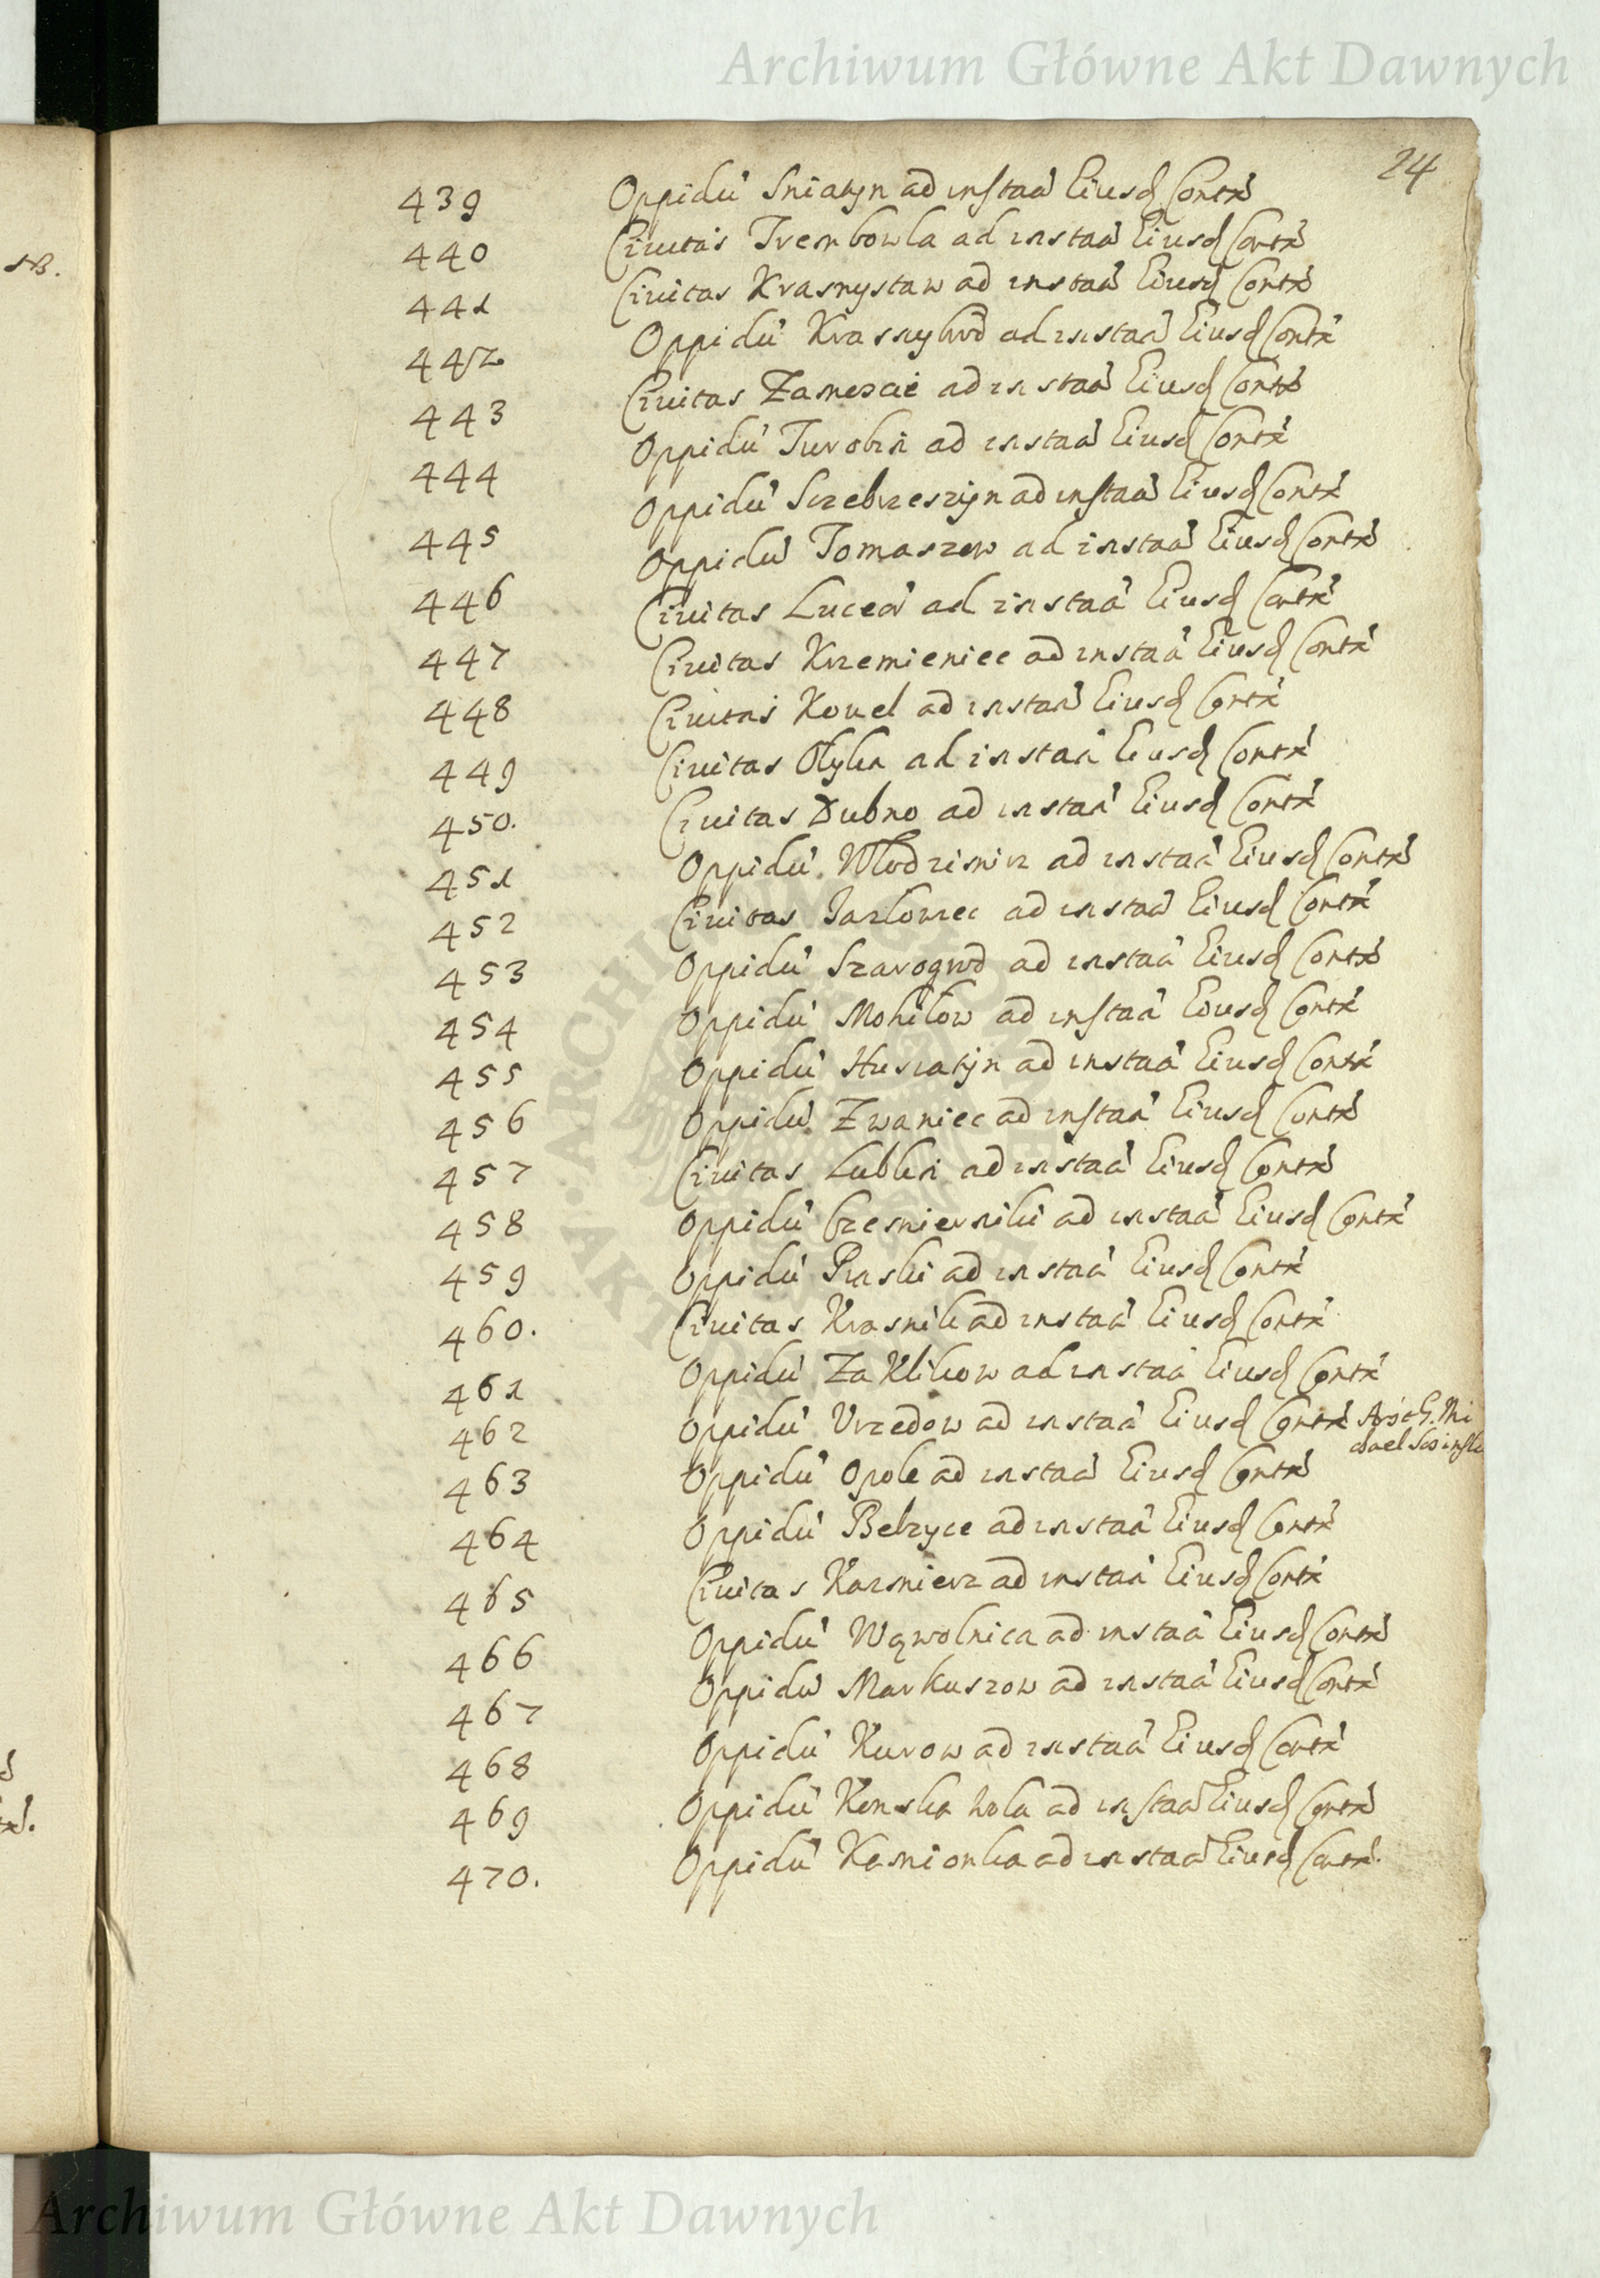 Archiwum Główne Akt Dawnych
24
439 Oppidu' Sniatyn ad instaã Eiusd Contã
440 Ciuitas Trembowla ad instaã Eiusd Contã
441 Ciuitas Krasnystaw ad instaã Eiusd Contã
442 Oppidu' Krassnybrod ad instaã Eiusd Contã
443 Ciuitas Zamoscie ad instaã Eiusd Contã
444 Oppidu' Turobin ad instaã Eiusd Contã
445 Oppidu' Sczebrzeszyn ad instaã Eiusd Contã
446 Oppidu' Tomaszow ad instaã Eiusd Contã
447 Ciuitas Luceã ad instaã Eiusd Contã
448 Ciuitas Krzemieniec ad instaã Eiusd Contã
449 Ciuitas Kouel ad instaã Eiusd Contã
450. Ciuitas Olyka ad instaã Eiusd Contã
451 Ciuitas Dubno ad instaã Eiusd Contã
452 Oppidu' Wlodzimirz ad instaã Eiusd Contã
453 Ciuitas Jazlowiec ad instaã Eiusd Contã
454 Oppidu' Szarogrod ad instaã Eiusd Contã
455 Oppidu' Mohilow ad instaã Eiusd Contã
456 Oppidu' Husiatyn ad instaã Eiusd Contã
457 Oppidu' Zwaniec ad instaã Eiusd Contã
458 Ciuitas Lublin ad instaã Eiusd Contã
459 Oppidu' Czemierniki ad instaã Eiusd Contã
460. Oppidu' Piaski ad instaã Eiusd Contã
461 Ciuitas Krasnik ad instaã Eiusd Contã
462 Oppidu' Zaklikow ad instaã Eiusd Contã
463 Oppidu' Vrzedow ad instaã Eiusd Contã
464 Oppidu' Opole ad instaã Eiusd Contã
465 Oppidu' Belzyce ad instaã Eiusd Contã
466 Ciuitas Kazmierz ad instaã Eiusd Contã
467 Oppidu' Wąwolnica ad instaã Eiusd Contã
468 Oppidu' Markuszow ad instaã Eiusd Contã
469 Oppidu' Kurow ad instaã Eiusd Contã
470. Oppidu' Konska Wola ad instaã Eiusd Contã
Oppidu' Kamionka ad instaã Eiusd Contã
Archiwum Główne Akt Dawnych